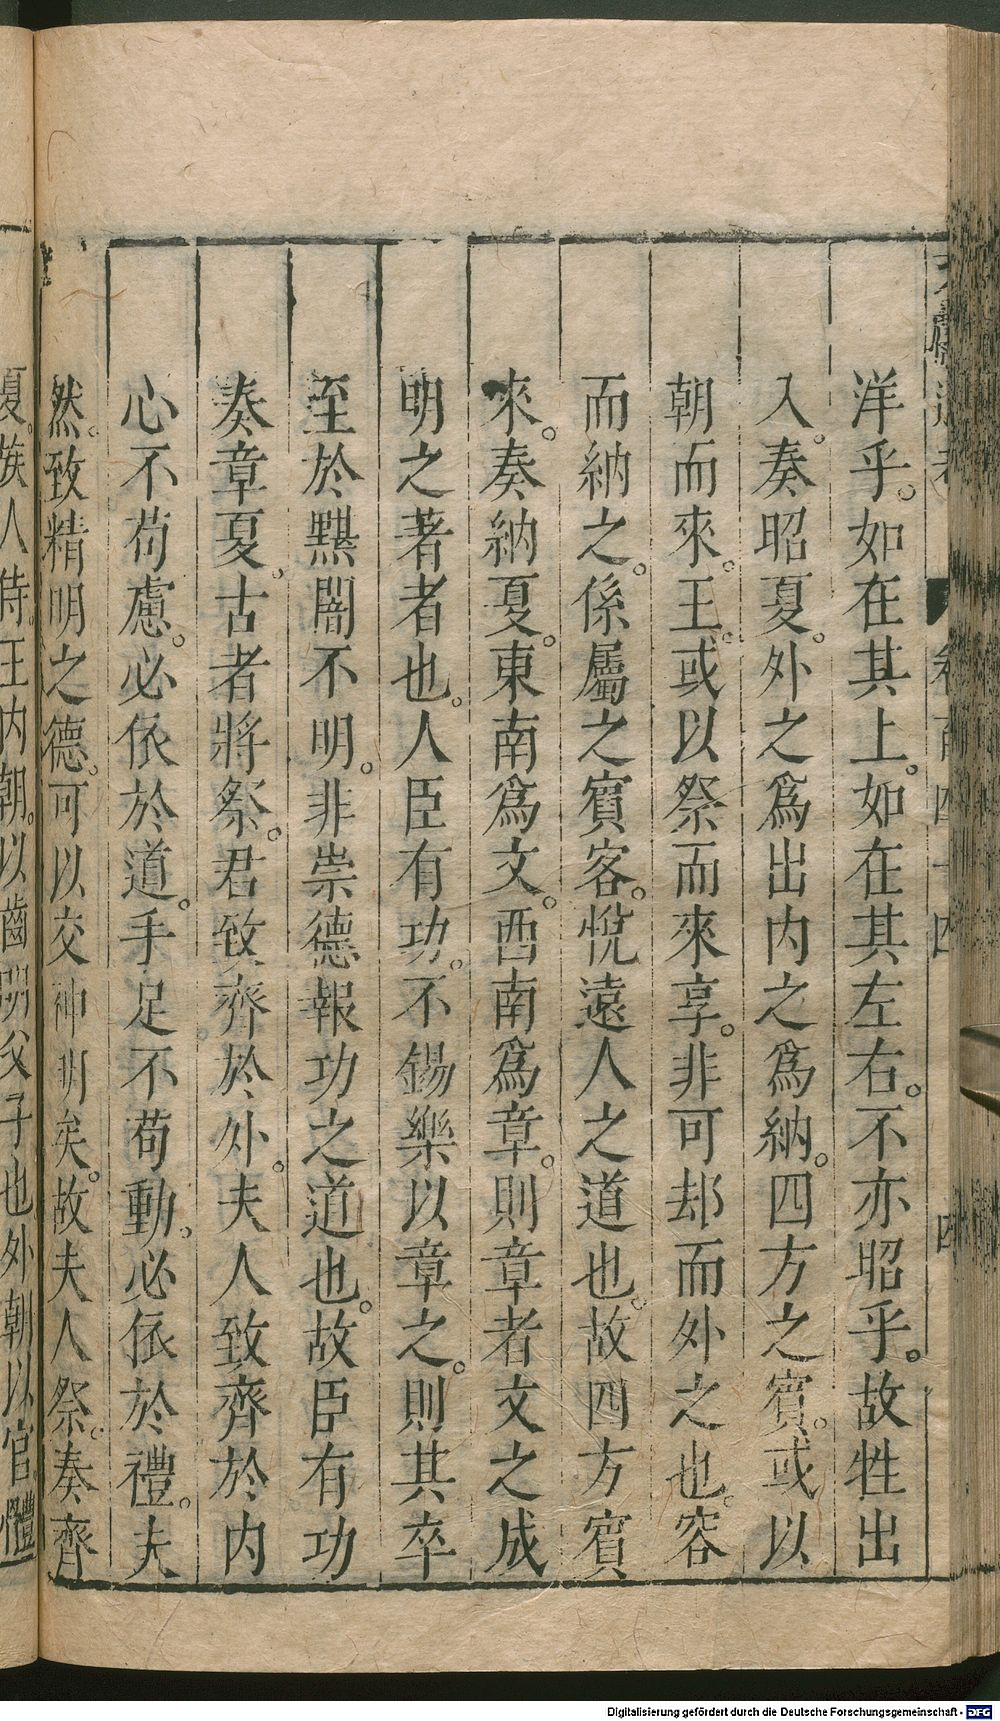 洋乎。如在其上。如在其左右。不亦昭乎。故牲出
入。奏昭夏。外之爲出内之爲納。四方之賓。或以
朝而來。王。或以祭而來享。非可却而外之也。容
而納之。係屬之賓客。悅遠人之道也。故四方賓
來。奏納夏。東南爲文。西南爲章。則章者文之成
明之著者也。人臣有功。不錫樂以章之。則其卒
至於黮闇不明。非崇德報功之道也。故臣有功
奏章夏。古者將祭。君致齊於外。夫人致齊於内
心不苟慮。必依於道。手足不苟動。必依於禮。夫
然。致精明之德。可以交神明矣。故夫人祭。奏齊
夏。族人侍。王内朝。以齒明父子也外朝以官。體
Digitalisierung gefördert durch die Deutsche Forschungsgemeinschaft - DFG